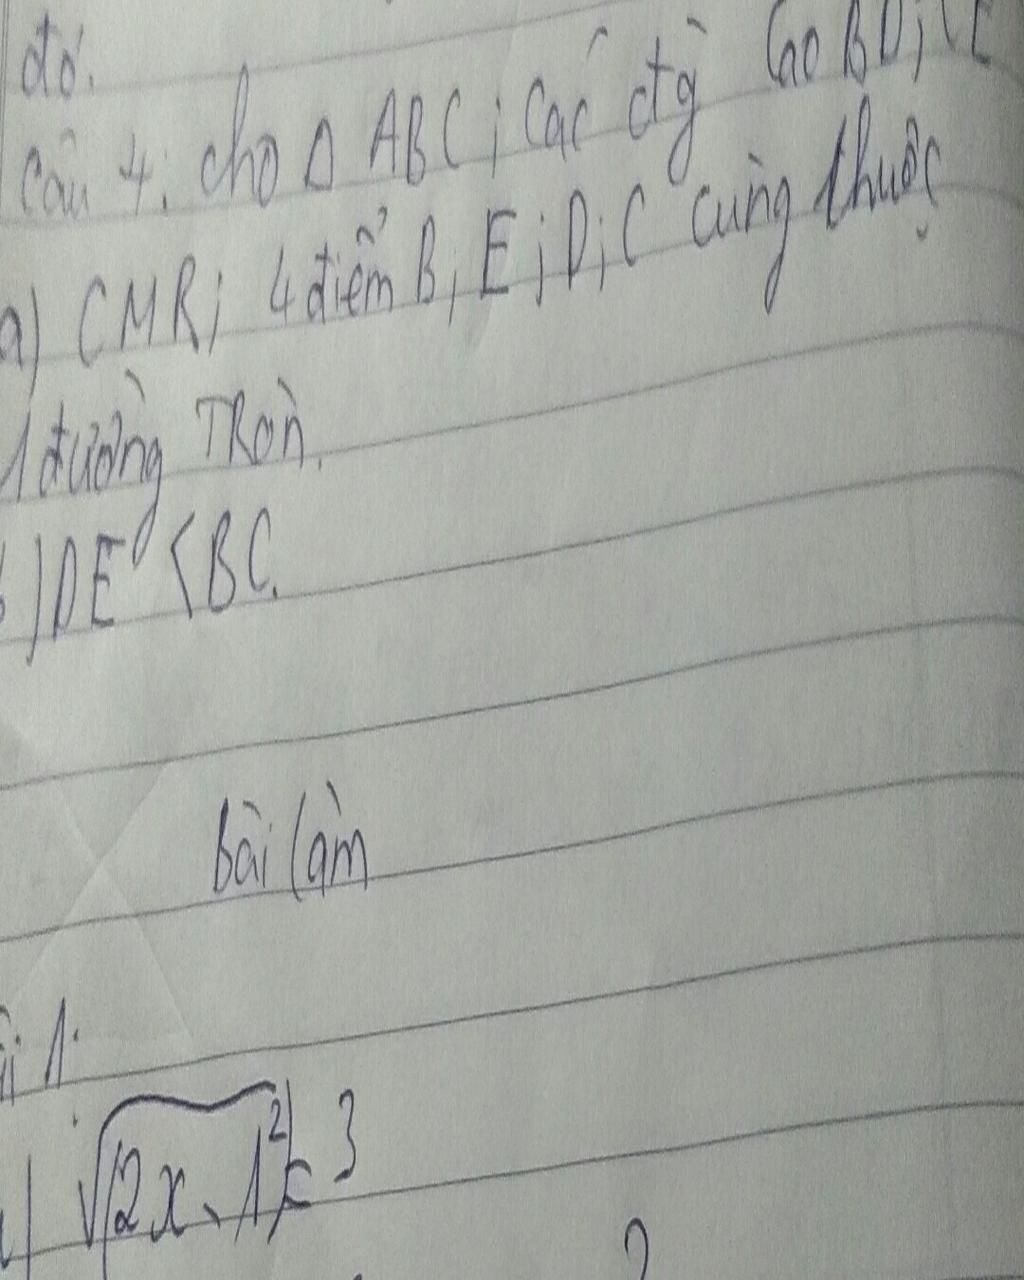 đó.
Câu 4: cho Δ ABC; Các đtg Cao BD; CE
a) CMR; 4 điểm B; E; D; C cùng thuộc
1 đường TRòn.
b) DE < BC.
bài làm
1.
a) √(2x-1)² = 3